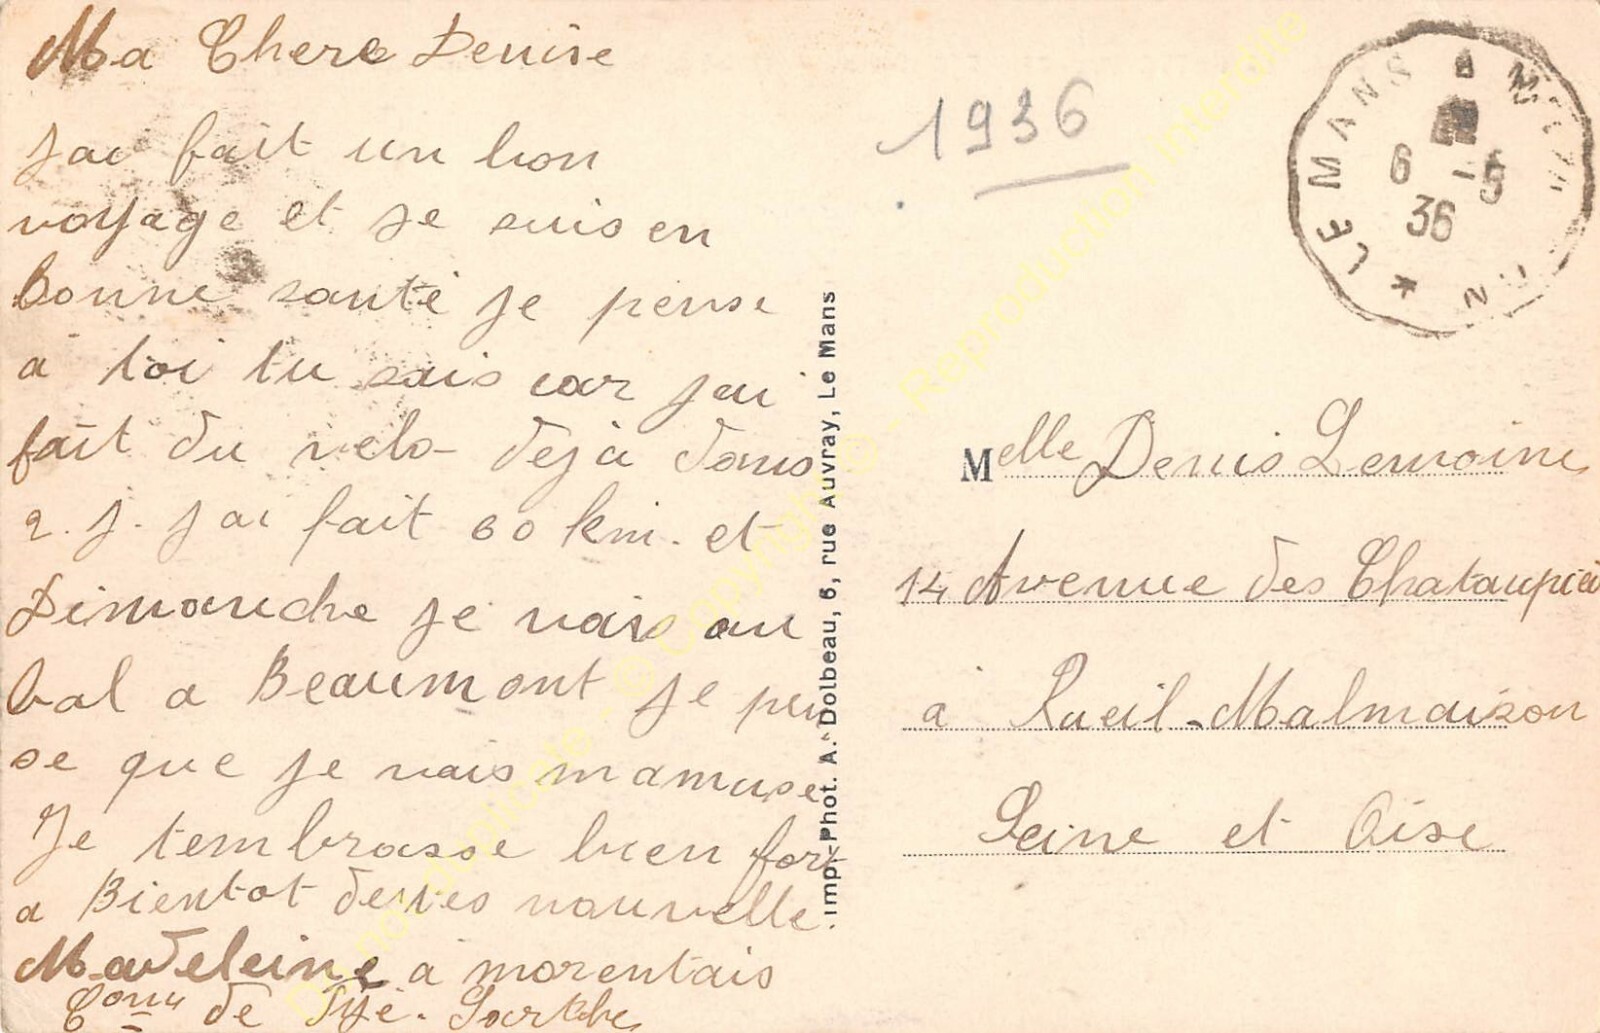 Ma Chere Denise
J'ai fait un bon
voyage et je suis en
bonne santé je pense
à toi tu sais car j'ai
fait du velo déjà dans
2. j. j'ai fait 60 km. et
Dimanche je vais au
bal a Beaumont je pen
se que je vais mamuse
Je tembrasse bien fort
a Bientot de tes nouvelle.
Madeleine a morentais
Comu de Tyé. Sarthe
Imp.-Phot. A. Dolbeau, 6, rue Auvray, Le Mans
1936
LE MANS A
6 -5
36
Melle Denis Lemoine
14 Avenue des Chataupiei
à Rueil-Malmaison
Seine et Oise
Do not duplicate - © Copyright © - Reproduction Interdite